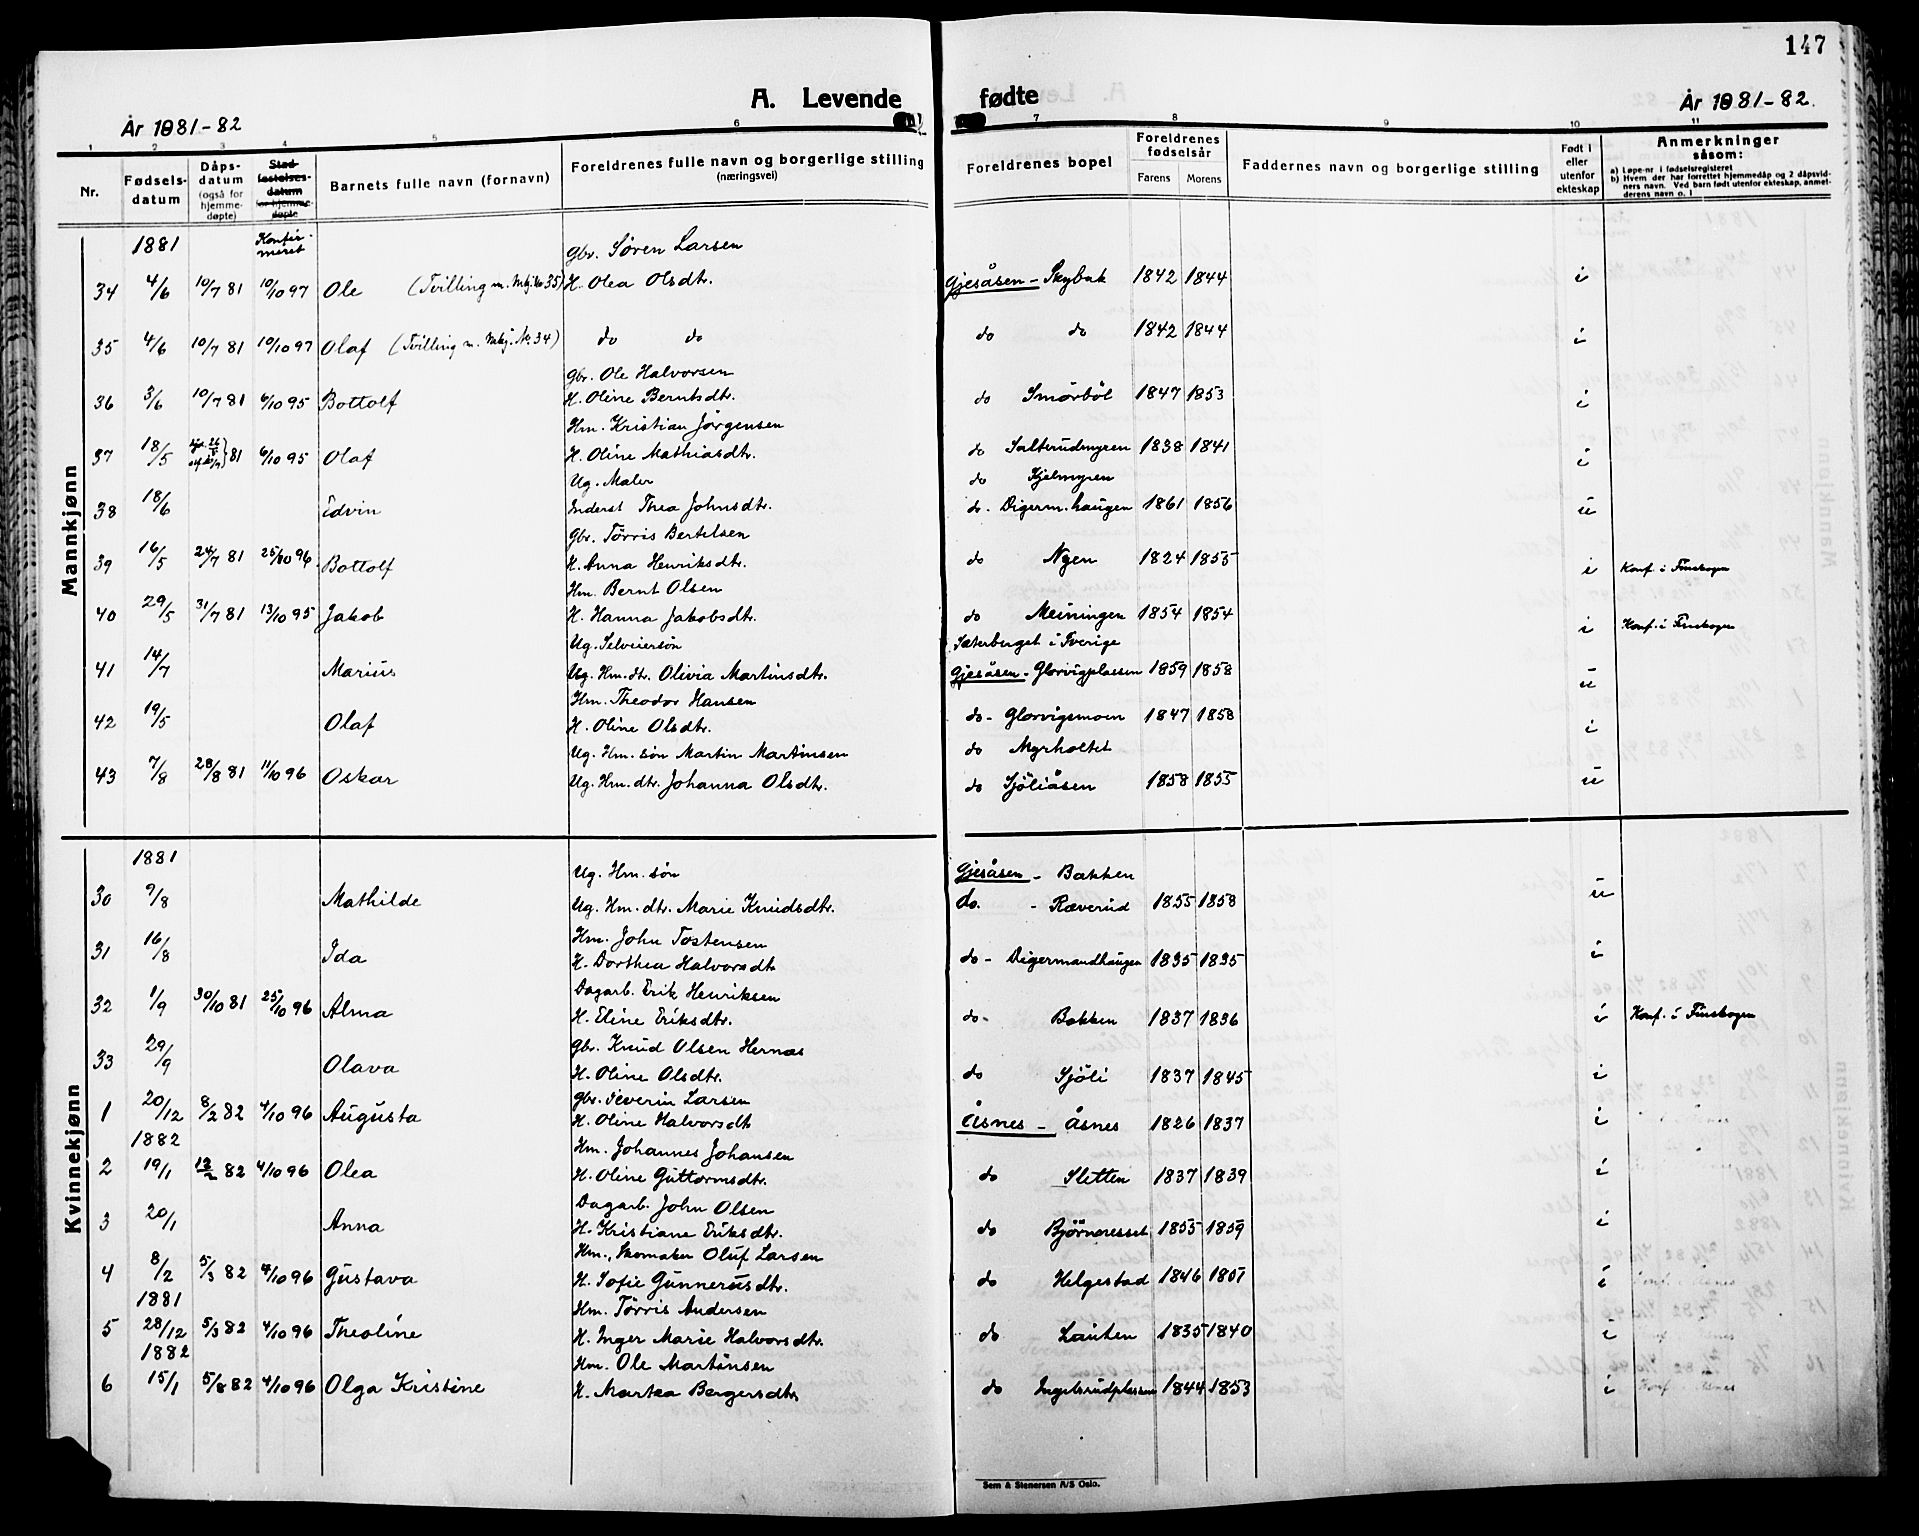 147
A. Levende fødte
År 1881-82 År 1881-82.
1 2 3 4 5 6 7 8 9 10 11
Nr. Fødsels-datum Dåps-datum (også for hjemme-døpte) Stad-festelses-datum for hjemme-døpte Barnets fulle navn (fornavn) Foreldrenes fulle navn og borgerlige stilling (næringsvei) Foreldrenes bopel Foreldrenes fødselsår Farens Morens Faddernes navn og borgerlige stilling Født i eller utenfor ekteskap Anmerkninger såsom:
a) Løpe-nr i fødselsregisteret
b) Hvem der har forrettet hjemmedåp og 2 dåpsvidners navn. Ved barn født utenfor ekteskap, anmelderens navn o. l
Mannkjønn
1881 Konfirmeret Gbr. Søren Larsen
34 4/6 10/7 81 10/10 97 Ole (Tvilling m. Mkj. No 35) H. Olea Olsdtr. Gjesåsen - Skybak 1842 1844 i
35 4/6 10/7 81 10/10 97 Olaf (Tvilling m. Mkj. No. 34) do do do do 1842 1844 i
Gbr. Ole Halvorsen
36 3/6 10/7 81 6/10 95 Bottolf H. Oline Berntsdtr. do Smørbøl 1847 1853 i
Hm. Kristian Jørgensen
37 18/5 81 6/10 95 Olaf H. Oline Mathiasdtr. do Salterudmyren 1838 1841 i
Ug. Maler do Kjelmyren
38 18/6 Edvin Inderst Thea Johnsdtr. do. Digerm.haugen 1861 1856 u
Gbr. Tørris Bertelsen
39 16/5 24/7 81 25/10 96. Bottolf H. Anna Henriksdtr. do Nyen 1824 1855 i Konf. i Finskogen
Hm. Bernt Olsen
40 29/5 31/7 81 13/10 95 Jakob H. Hanna Jakobsdtr. do Meiningen 1854 1854 i Konf. i Finskogen
Ug. Selveiersøn Sæterberget i Sverige
41 14/7 Marius Ug. Hm. dtr. Olivia Martinsdtr. Gjesåsen - Glorvigplassen 1859 1858 u
Hm. Theodor Hansen
42 19/5 Olaf H. Oline Olsdtr. do - Glorvigsmoen 1847 1858 i
Ug. Hm. søn Martin Martinsen do Myrholtet
43 7/8 28/8 81 11/10 96 Oskar Ug. Hm. dtr. Johanna Olsdtr. do Sjöliåsen 1858 1855 u
Kvinnekjønn
1881 Ug. Hm. søn Gjesåsen - Bakken
30 9/8 Mathilde Ug. Hm. dtr. Marie Knudsdtr. do. - Ræverud 1855 1858 u
Hm. John Tostensen
31 16/8 Ida H. Dorthea Halvorsdtr do - Digermandhaugen 1835 1835 i
Dagarb. Erik Henriksen
32 1/9 30/10 81 25/10 96 Alma H. Eline Eriksdtr. do - Bakken 1837 1836 i Konf. i Finskogen
Gbr. Knud Olsen Hernæs
33 29/9 Olava H. Oline Olsdtr. do Sjöli 1837 1845 i
Gbr. Severin Larsen
1 20/12 8/2 82 4/10 96 Augusta H. Oline Halvorsdt Åsnes - Åsnes 1826 1837 i
1882 Hm. Johannes Johansen
2 19/1 12/2 82 4/10 96 Olea H. Oline Guttormsdtr. do Sletten 1837 1839 i
Dagarb. John Olsen
3 20/1 Anna H. Kristiane Eriksdtr. do Bjørneresset 1855 1859 i
Hm., Skomaker Oluf Larsen
4 8/2 5/3 82 4/10 96 Gustava H. Sofie Gunnerusdtr. do Helgestad 1846 i
1881 Hm. Tørris Andersen
5 28/12 5/3 82 4/10 96 Theoline H. Inger Marie Halvorsdtr. do Lauten 1835 1840 i
1882 Hm. Ole Martinsen
6 15/1 5/8 82 4/10 96 Olga Kristine H. Martea Bergersdtr do Ingelsrudplassen 1844 1853 i
Sem & Stenersen A/S Oslo.